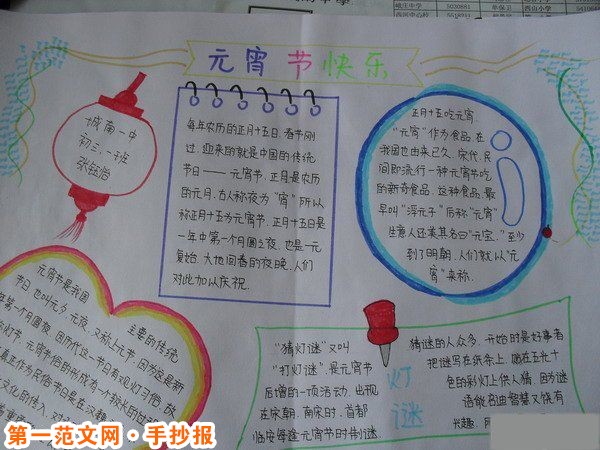 元宵节快乐
城南一中
初三、一班
每年农历的正月十五日.春节刚
过.迎来的就是中国的传统
节日——元宵节.正月是农历
的元月.古人称夜为“宵”所以
称正月十五为元宵节.正月十五日是
一年中第一个月圆之夜.也是一元
复始.大地回春的夜晚.人们
对此加以庆祝.
正月十五吃元宵.
“元宵”作为食品.在
我国也由来已久.宋代.民
间即流行一种元宵节吃
的新奇食品.这种食品.最
早叫“浮元子”后称“元宵”
生意人还美其名曰“元宝.”至少
到了明朝.人们就以“元
宵”来称.
元宵节是我国 主要的传统
节日.也叫元夕.元夜.又称上元节.因为这是新
年第一个月圆夜.因历代这一节日有观灯习俗.故
灯节.元宵节俗的形成有一个较长的
真正作为民俗节日是在汉魏
文化的传入.
“猜灯谜”又叫
“打灯谜”.是元宵节
后增的一项活动.出现
在宋朝.南宋时.首都
临安每逢元宵节时制谜.
灯谜
猜谜的人众多.开始时是好事者
把谜写在纸条上.贴在五光十
色的彩灯上供人猜.因为谜
语能启迪智慧又饶有
兴趣.
第一范文网·手抄报